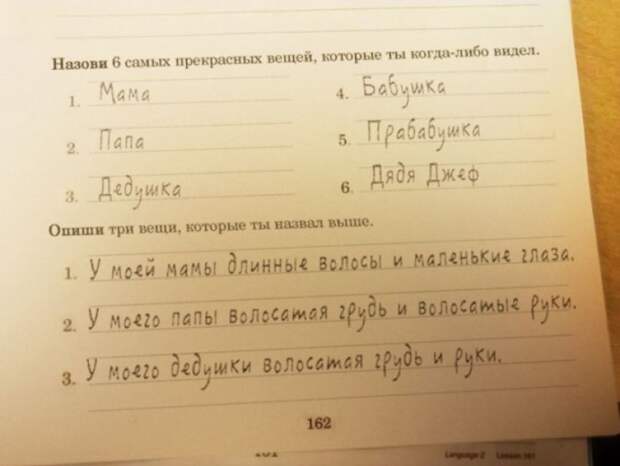 Назови 6 самых прекрасных вещей, которые ты когда-либо видел.
1. Мама
2. Папа
3. Дедушка
4. Бабушка
5. Прабабушка
6. Дядя Джеф
Опиши три вещи, которые ты назвал выше.
1. У моей мамы длинные волосы и маленькие глаза.
2. У моего папы волосатая грудь и волосатые руки.
3. У моего дедушки волосатая грудь и руки.
162
Language 2 Lesson 161